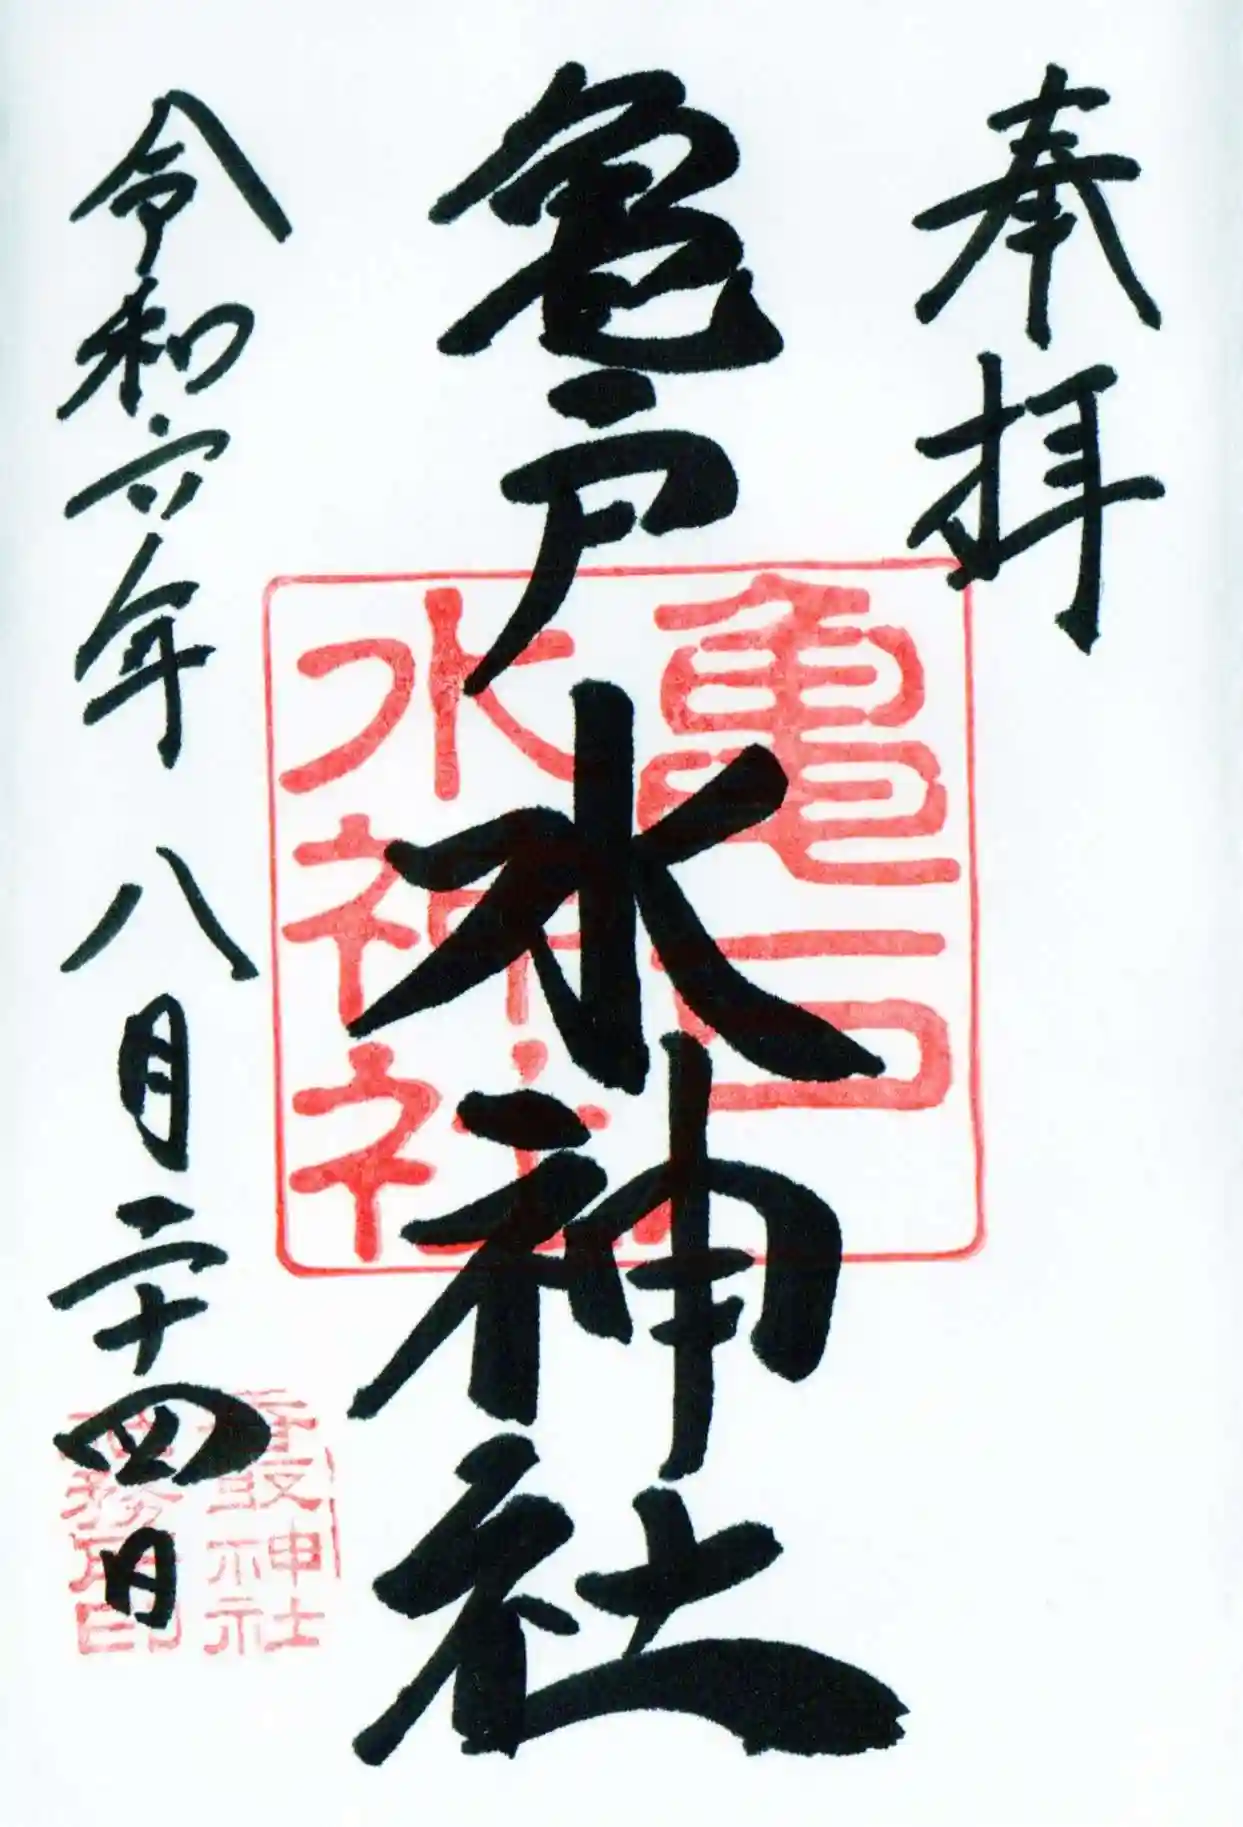 奉拝
亀戸水神社
亀戸
水神社
令和六年八月二十四日
香取神社
社務所印